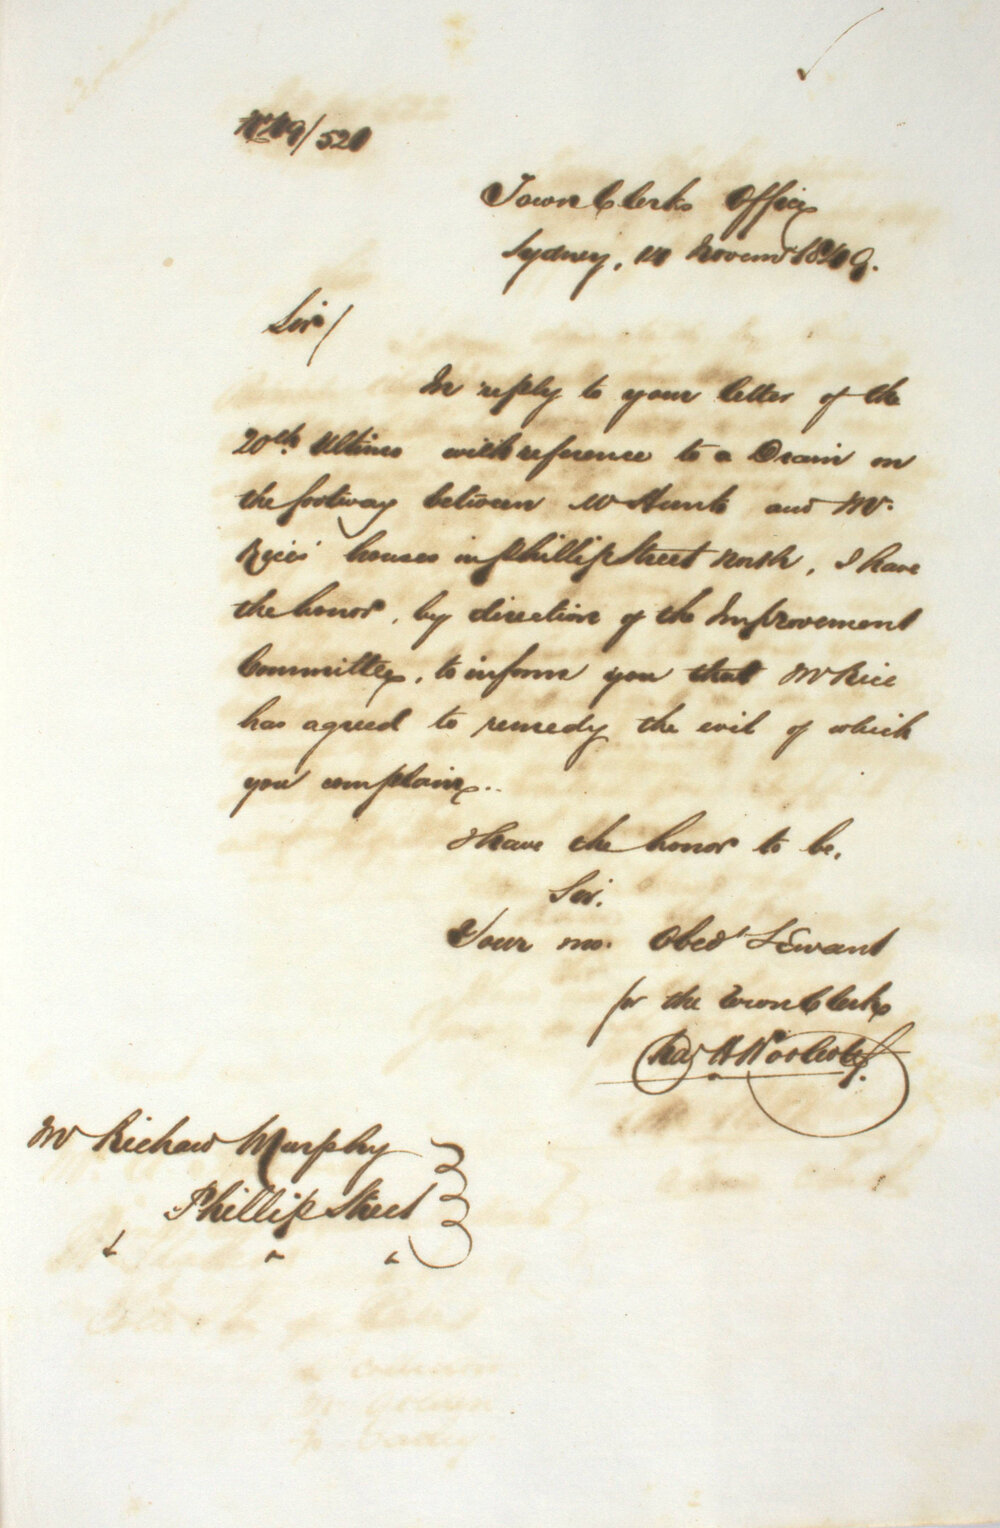 49/520
Town Clerks Office
Sydney, 14 Novemr 1849.
Sir/
In reply to your letter of the
20th Ultimo with reference to a Drain on
the footway between Mr Hunts and Mr.
Rices' houses in Phillip Street North, I have
the honor, by direction of the Improvement
Committee, to inform you that Mr Rice
has agreed to remedy the evil of which
you complain..
I have the honor to be.
Sir.
Your mo. Obedt Servant
for the Town Clerk
Chas H Woolcott.
Mr Richard Murphy
Phillip Street